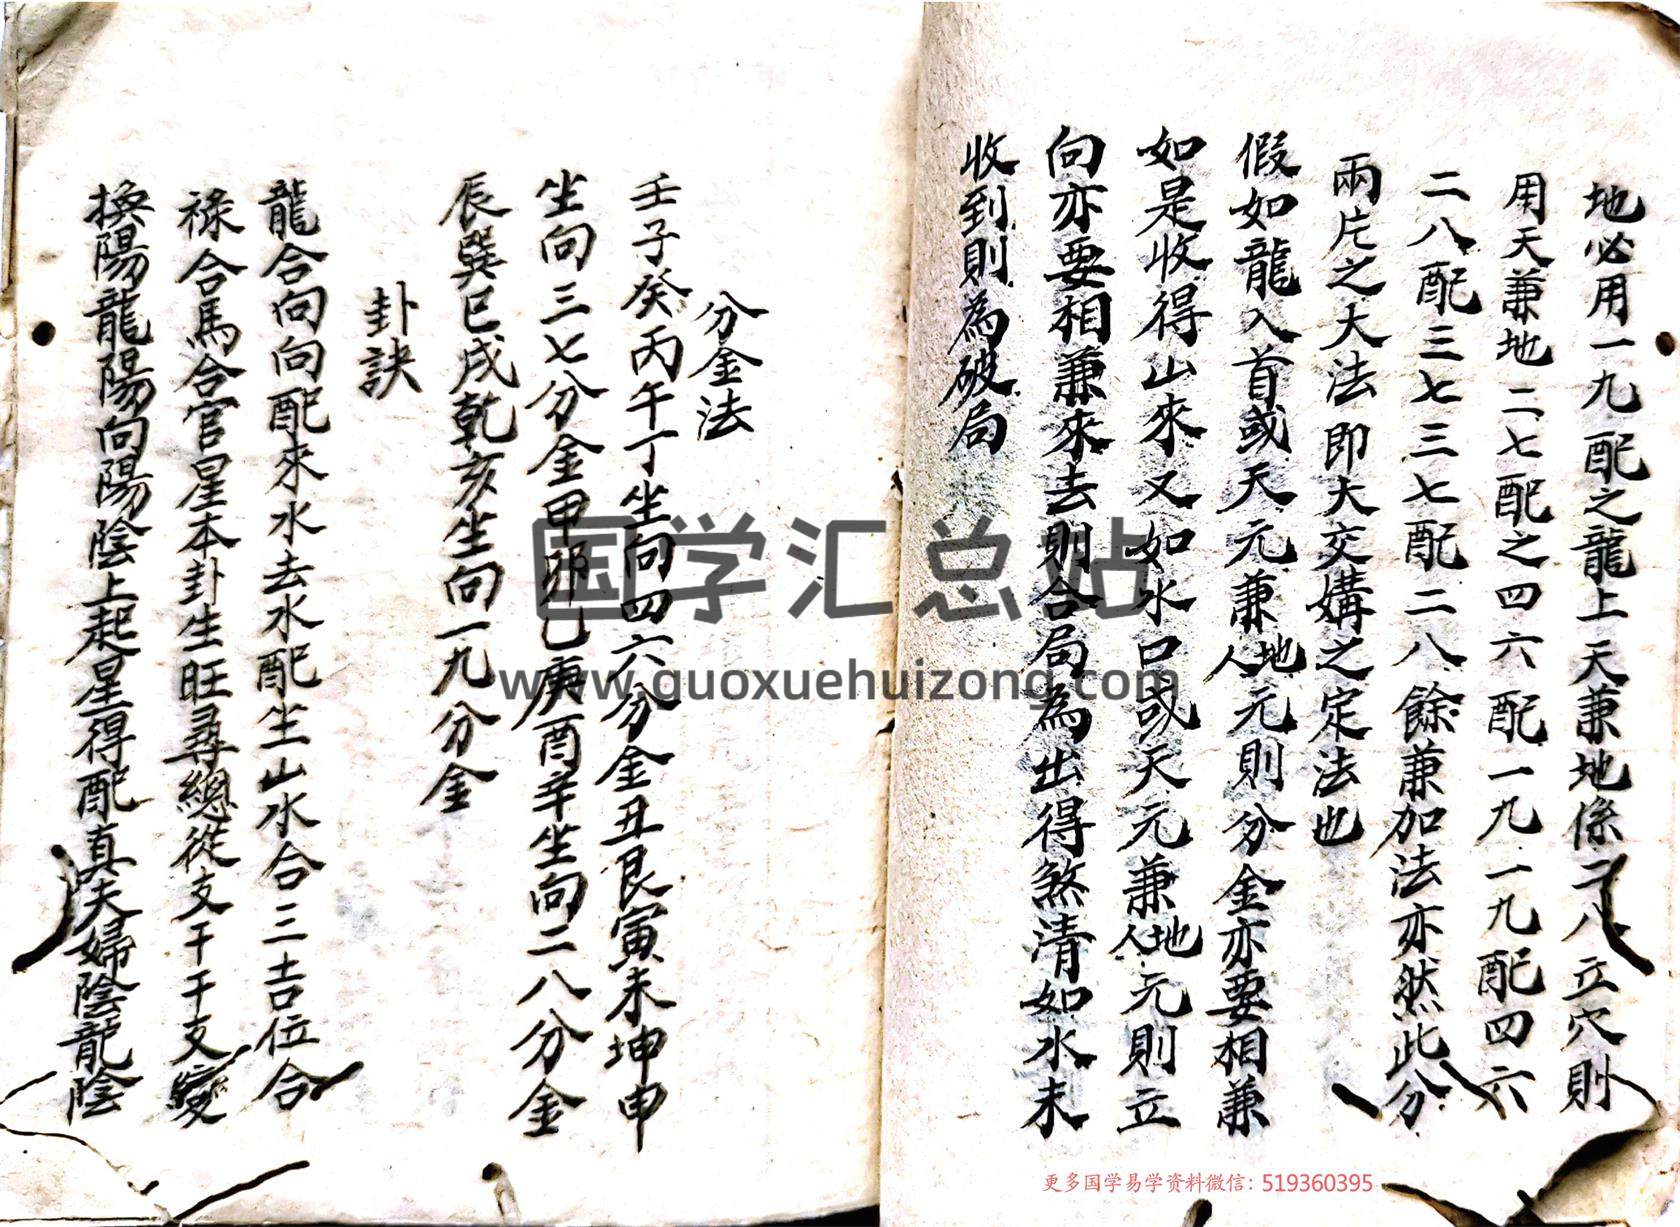 地必用一九配之龍上天兼地係二八立穴則
用天兼地二七配之四六配一九一九配四六
二八配三七三七配二八餘兼加法亦然此分
兩片之大法即大交媾之定法也
假如龍入首或天元兼地人元則分金亦要相兼
如是收得山來又如水口或天元兼地人元則立
向亦要相兼來去則合局為出得煞清如水未
收到則為破局
分金法
壬子癸丙午丁坐向四六分金丑艮寅未坤申
坐向三七分金甲卯乙庚酉辛坐向二八分金
辰巽巳戌乾亥坐向一九分金
卦訣
龍合向向配來水去水配坐山水合三吉位合
祿合馬合官星本卦生旺尋總從支干干支變
換陽龍陽向陽陰上起星得配真夫婦陰龍陰
国学汇总站
www.guoxuehuizong.com
更多国学易学资料微信：519360395